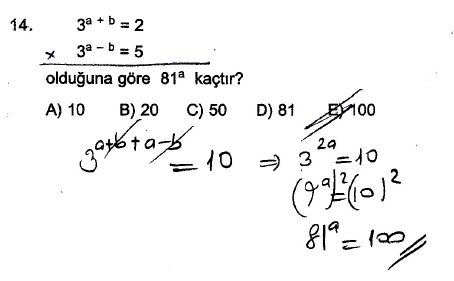 14. 3^(a + b) = 2
x 3^(a – b) = 5
olduğuna göre 81^a kaçtır?
A) 10 B) 20 C) 50 D) 81 E) 100
3^(a+b+a-b) = 10 ⇒ 3^(2a) = 10
(9^a)^2 = (10)^2
81^a = 100